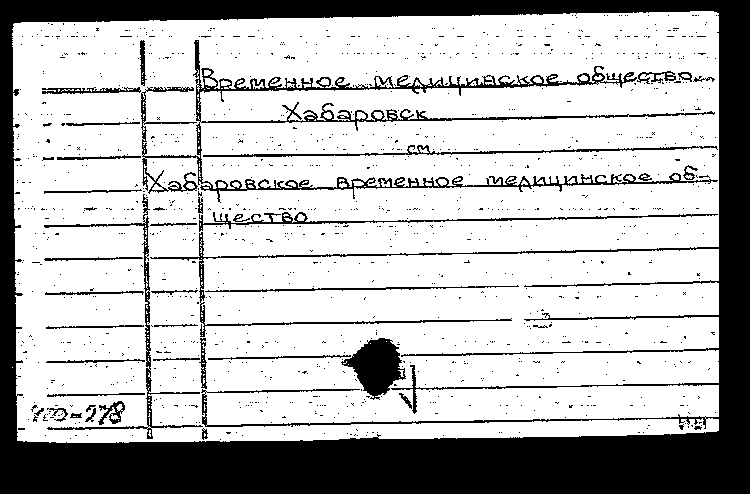 Временное медицинское общество.
Хабаровск
см.
Хабаровское временное медицинское об-
щество